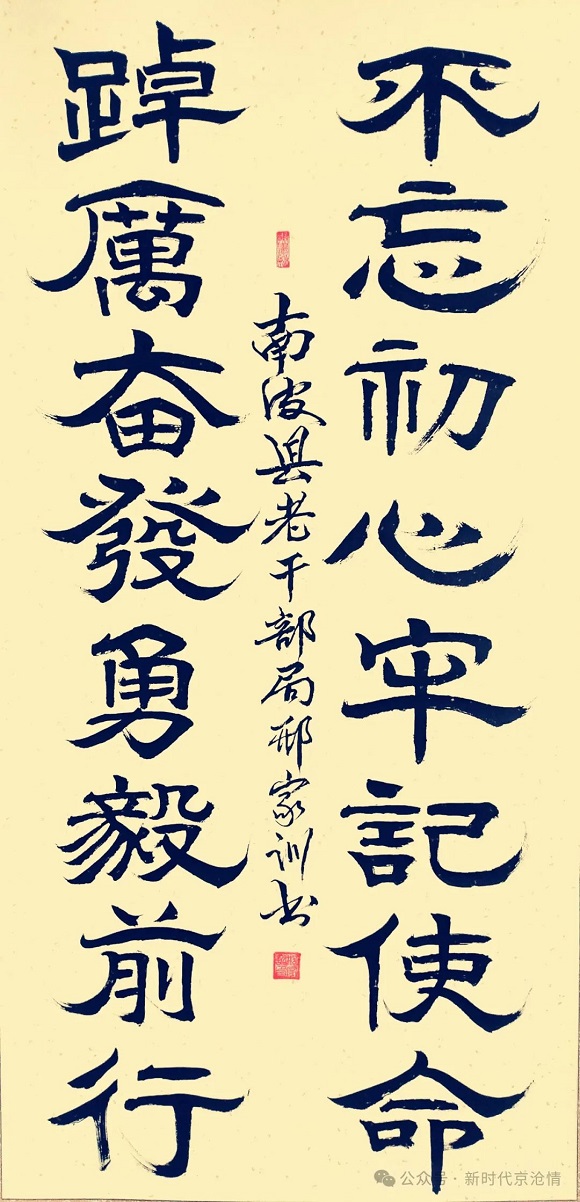 不忘初心牢記使命
踔厲奋發勇毅前行
南皮县老干部局邢家训书
公众号 · 新时代京沧情